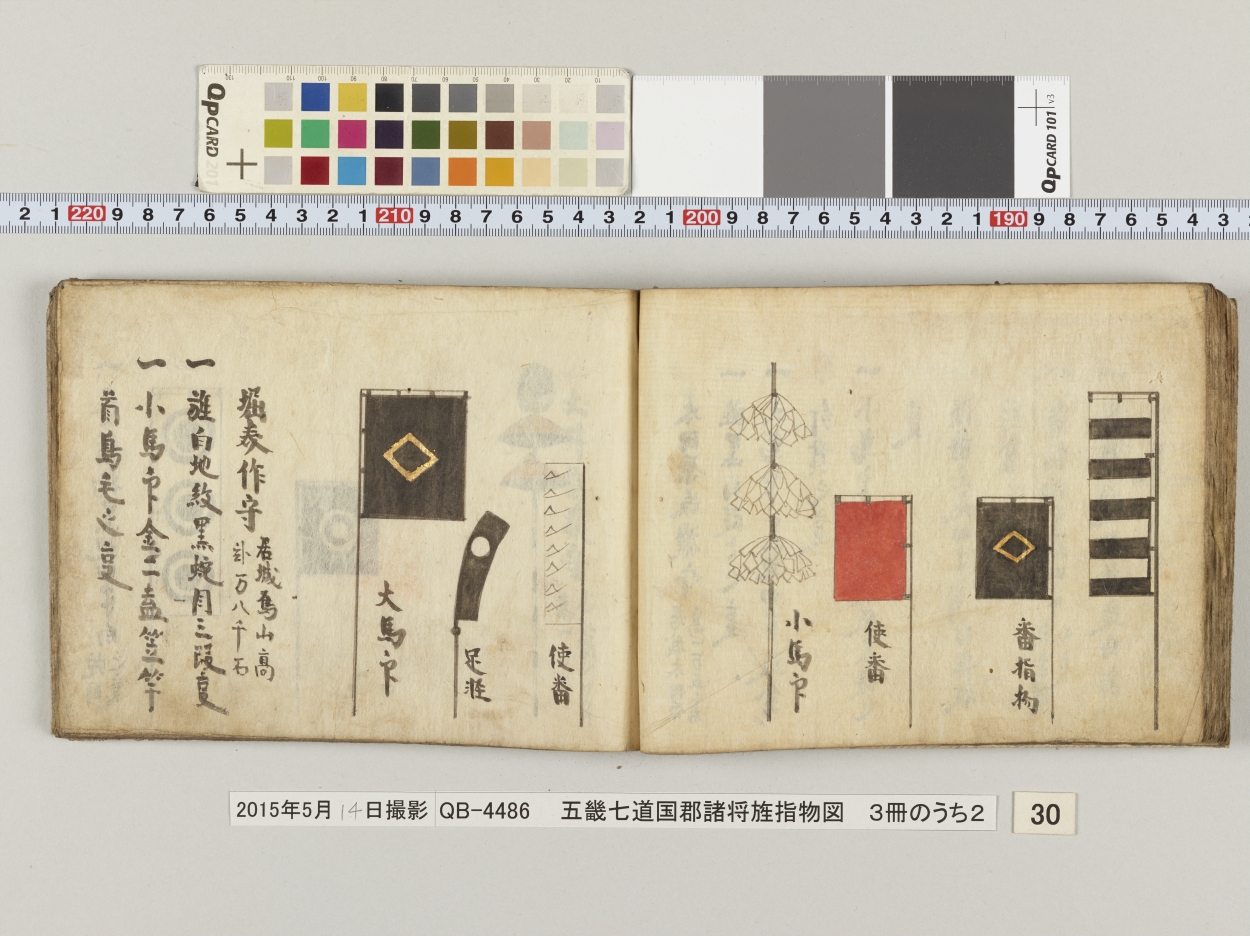 QPCARD 201
QPCARD 101 v3
2 1 220 9 8 7 6 5 4 3 2 1 210 9 8 7 6 5 4 3 2 1 200 9 8 7 6 5 4 3 2 1 190 9 8 7 6 5 4 3
番指物
使番
小馬印
使番
足
大馬印
堀美作守
居城烏山高
弐万八千石
一 白地紋黒蛇目三段
一 小馬印金二蓋笠竿
首鳥毛
2015年5月14日撮影 QB-4486 五畿七道国郡諸将旌指物図 3冊のうち2
30